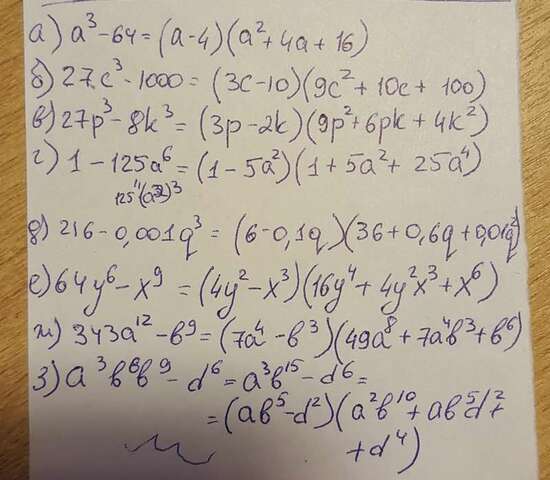 а) a³ - 64 = (a - 4)(a² + 4a + 16)
б) 27c³ - 1000 = (3c - 10)(9c² + 10c + 100)
в) 27p³ - 8k³ = (3p - 2k)(9p² + 6pk + 4k²)
г) 1 - 125a⁶ = (1 - 5a²)(1 + 5a² + 25a⁴)
д) 216 - 0,001q³ = (6 - 0,1q)(36 + 0,6q + 0,01q²)
е) 64y⁶ - x⁹ = (4y² - x³)(16y⁴ + 4y²x³ + x⁶)
ж) 343a¹² - b⁹ = (7a⁴ - b³)(49a⁸ + 7a⁴b³ + b⁶)
з) a³b⁶b⁹ - d⁶ = a³b¹⁵ - d⁶ =
= (ab⁵ - d²)(a²b¹⁰ + ab⁵d² +
+ d⁴)